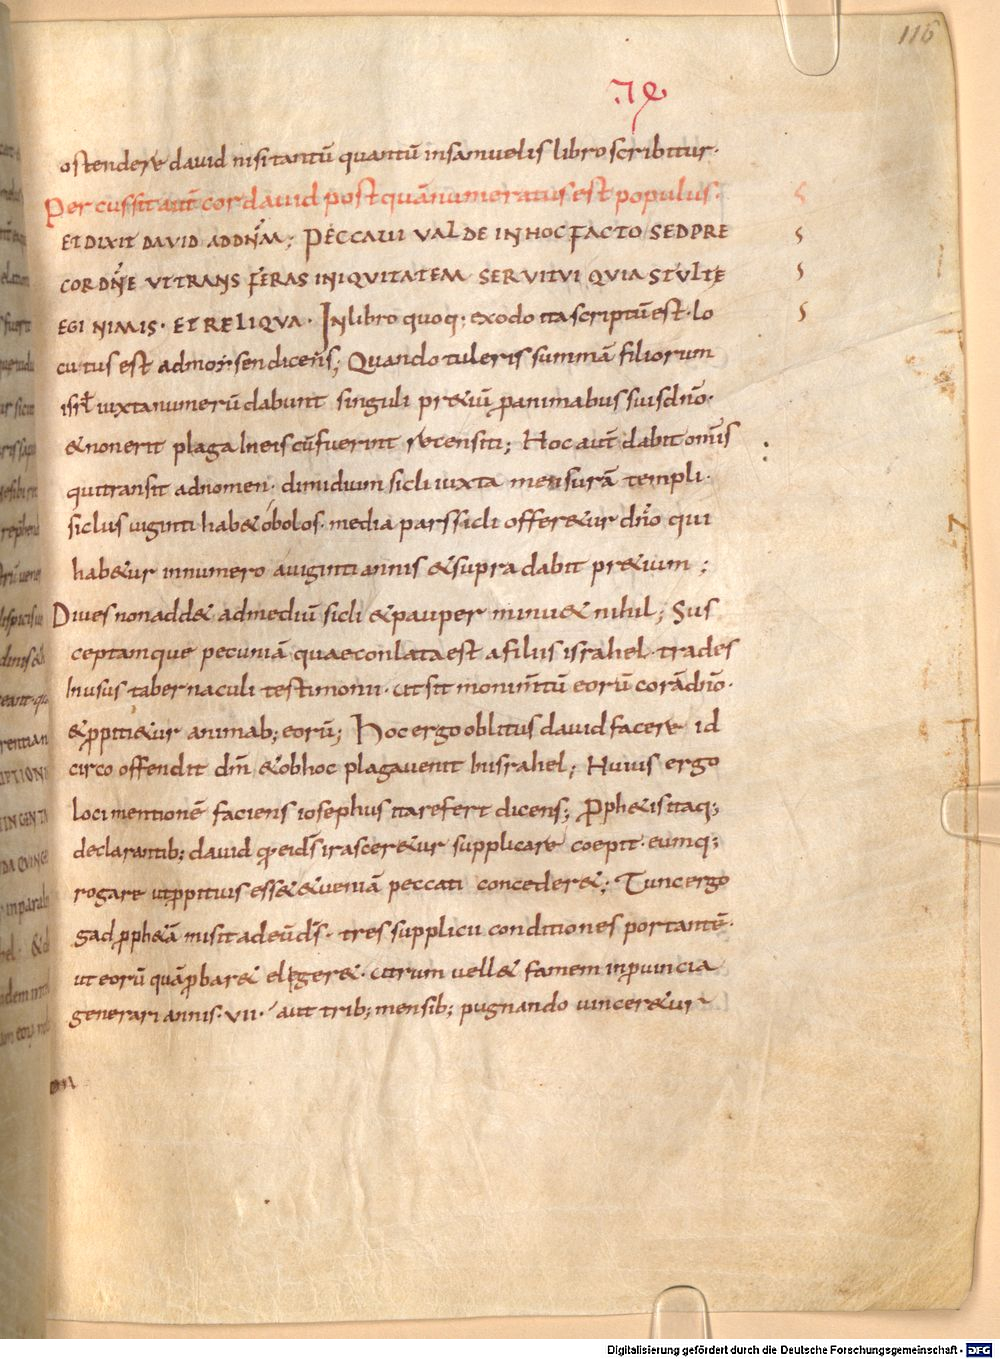 116
ostendere david nisi tantū quantū in samuelis libro scribitur·
Percussit aut̄ cor david postquā numeratus est populus·
ET DIXIT DAVID AD DN̄M; PECCAVI VALDE IN HOC FACTO SED PRE
COR DN̄E UT TRANSFERAS INIQUITATEM SERVI TUI QUIA STULTE
EGI NIMIS· ET RELIQUA· In libro quoq; exodo ita scriptū est· lo
cutus est ad moysen dicens; Quando tuleris summā filiorum
isrł iuxta numerū dabunt singuli p̄&iū p̱ animabus suis dn̄o·
& non erit plaga in eis cū fuerint recensiti; Hoc aut̄ dabit om̄is
qui transit ad nomen· dimidium sicli iuxta mensurā templi·
siclus uiginti hab& obolos· media pars sicli offer&ur dn̄o qui
hab&ur in numero a uiginti annis & supra dabit pr&ium;
Diues non add& ad mediū sicli & pauper minu& nihil; Sus
ceptamque pecuniā quae conlata est a filiis israhel· trades
in usus tabernaculi testimonii· ut sit monim̄tū eorū corā dn̄o·
& ꝓpiti&ur animab; eorū; Hoc ergo oblitus david facere id
circo offendit dm̄ & ob hoc plaga uenit in israhel; Huius ergo
loci mentionē faciens iosephus ita refert dicens; ꝓph&is itaq;
declarantib; david qđ ei ds̄ irascer&ur supplicare coepit· eumq;
rogare ut ꝓpitius ess& & ueniā peccati conceder&; Tunc ergo
gad ꝓph&ā misit ad eū ds̄· tres supplicii conditiones portantē·
ut eorū quā ꝓbar& eleger&· utrum uell& famem in ꝓuincia
generari annis· VII· aut trib; mensib; pugnando uincer&ur
Digitalisierung gefördert durch die Deutsche Forschungsgemeinschaft - DFG